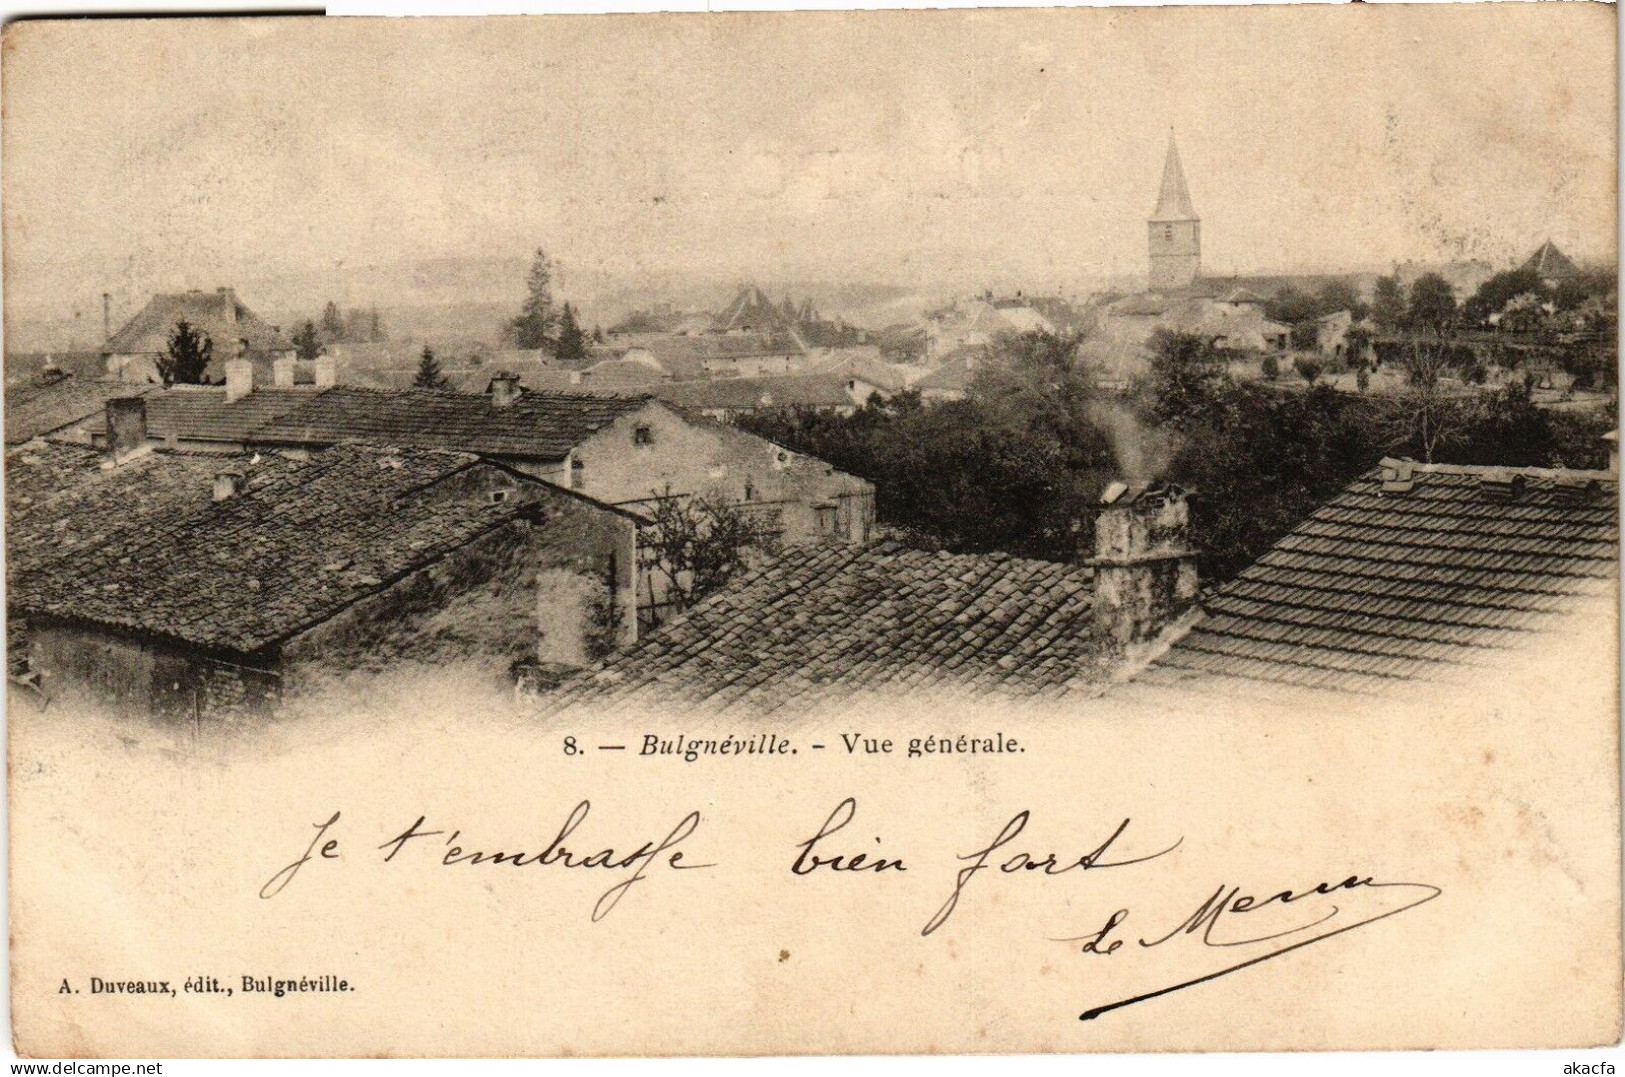 8. — Bulgnéville. - Vue générale.
Je t'embrasse bien fort
A. Duveaux, édit., Bulgnéville.
delcampe.net
akacfa